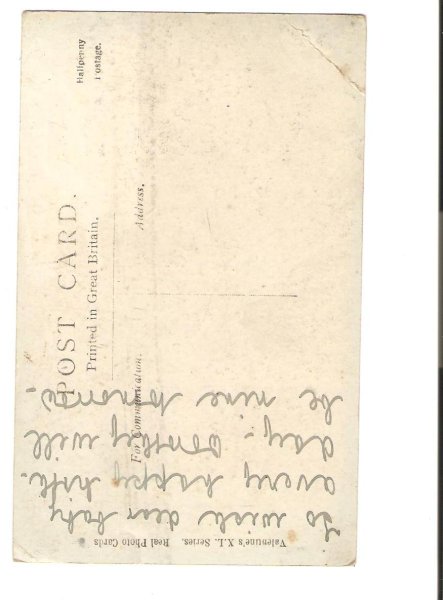 POST CARD.
Printed in Great Britain.
Halfpenny
Postage.
For Communication.
Address.
Valentine's X.L. Series. Real Photo Cards
To wish dear baby
a very happy birth-
day - Dorothy will
be nine tomorrow.